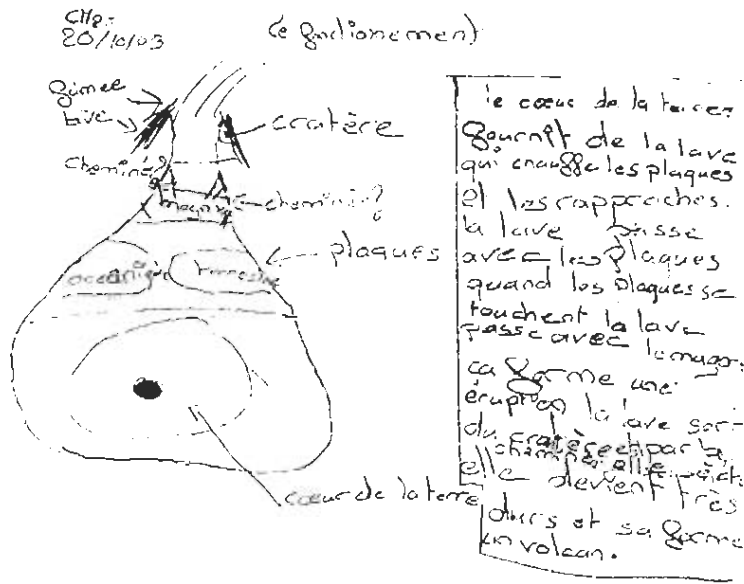 CM2:
20/10/03
le fonctionement
fumée
lave
cratère
cheminé?
magma
cheminé?
plaques
océanique
terrestre
cœur de la terre
le cœur de la terre
fournit de la lave
qui chauffe les plaques
et les rapproches.
la lave passe
avec les plaques
quand les plaques se
touchent la lave
passe avec le magma
ca forme une
éruption la lave sort
du cratère et par la
elle devient très
durs et sa forme
un volcan.